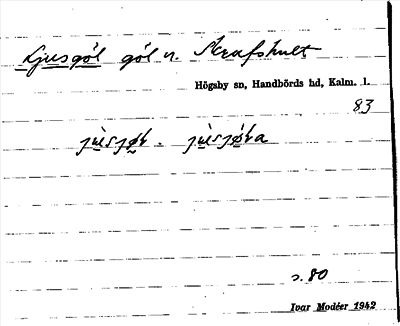 Ljusgöl göl n. Skrafshult
Högsby sn, Handbörds hd, Kalm. l.
83
s. 80
Ivar Modéer 1942